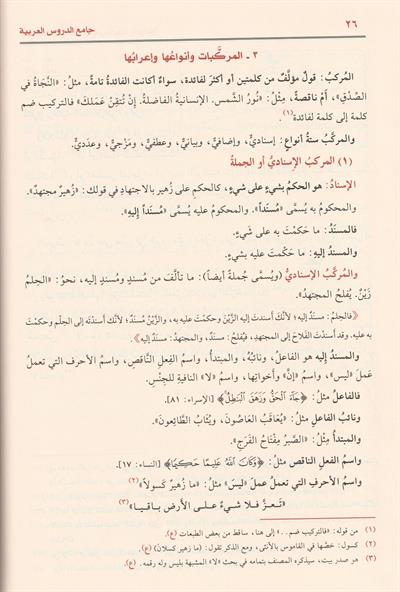 ٢٦
جامع الدروس العربية
٢ - المركَّبات وأنواعُها وإعرابُها
المركبُ: قولٌ مؤلَّفٌ من كلمتين أو أكثرَ لفائدة، سواءٌ أكانت الفائدةُ تامةً، مثلُ: «النَّجَاةُ في
الصِّدْقِ»، أَمْ ناقصةً، مِثْلُ: «نورُ الشَّمسِ. الإنسانيةُ الفاضلةُ. إنْ تُتْقِنْ عَمَلَك» فالتركيب ضم
كلمة إلى كلمة لفائدة(١).
والمركَّبُ ستةُ أنواعٍ: إسناديٌّ، وإضافيٌّ، وبيانيٌّ، وعطفيٌّ، ومَزْجيٌّ، وعدَديٌّ.
(١) المركبُ الإسناديُّ أو الجملةُ
الإسنادُ: هو الحكمُ بشيءٍ على شيءٍ، كالحكمِ على زُهير بالاجتهادِ في قولك: «زُهيرٌ مجتهدٌ».
والمحكومُ به يُسمَّى «مُسنَداً». والمحكومُ عليه يُسمَّى «مُسنَداً إليه».
فالمسنَدُ: ما حَكمْتَ به على شَيءٍ.
والمسندُ إليه: ما حَكَمْت عليه بشيءٍ.
والمركَّبُ الإسناديُّ (ويُسمَّى جُملةً أيضاً): ما تألَّفَ من مُسنَدٍ ومُسنَدٍ إليه، نحوُ: «الحِلمُ
زَيْنٌ. يُفلحُ المجتهدُ».
«فالحلمُ: مسنَدٌ إليه؛ لأنك أسندتَ إليه الزَّيْنَ وحكمْتَ عليه به، والزَّيْنُ مُسنَدٌ؛ لأنَّك أسندْتَه إلى الحِلْم وحكمْتَ
به عليه. وقد أسندْتَ الفَلاحَ إلى المجتهدِ، فيُفلحُ: مسنَدٌ، والمجتهدُ: مسنَدٌ إليه».
والمسندُ إليه هو الفاعلُ، ونائبُهُ، والمبتدأُ، واسمُ الفِعلِ النَّاقصِ، واسمُ الأحرفِ التي تعملُ
عَمَلَ «ليس»، واسمُ «إنَّ» وأخواتِها، واسمُ «لا» النافيةِ للجِنْسِ.
فالفاعلُ مثلُ: ﴿جَآءَ ٱلْحَقُّ وَزَهَقَ ٱلْبَٰطِلُ﴾ [الإسراء: ٨١].
ونائبُ الفاعل مثلُ: «يُعاقَبُ العَاصُونَ، ويُثَابُ الطَّائِعونَ».
والمبتدأُ مِثْلُ: «الصَّبرُ مِفْتَاحُ الفَرَجِ».
واسمُ الفعلِ الناقص مثلُ: ﴿وَكَانَ ٱللَّهُ عَلِيمًا حَكِيمًا﴾ [النساء: ١٧].
واسمُ الأحرف التي تعملُ عملَ «ليسَ» مثلُ: «ما زُهيرٌ كَسولاً»(٢)
«تَعزَّ فلا شيءٌ على الأرضِ باقيا»(٣)
(١) من قوله: «فالتركيب ضم..» إلى هنا، ساقط من بعض الطبعات (ع).
(٢) كسول: خصَّها في القاموس بالأنثى، ومع الذكر تقول: (ما زهير كسلانَ) (ع).
(٣) هو صدر بيت، سيذكره المصنف بتمامه في بحث «لا» المشبهة بليس وله رقمه. (ع).